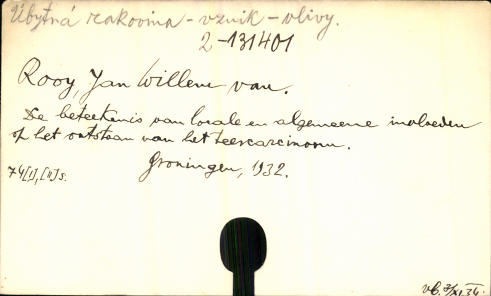 Úbytná rakovina - vznik - vlivy.
2-131401
Rooy, Jan Willem van.
De beteekenis van locale en algemeene invloeden
op het ontstaan van het teercarcinoom.
Groningen, 1932.
74[1], [11] s.
vb. 3/XI.36.